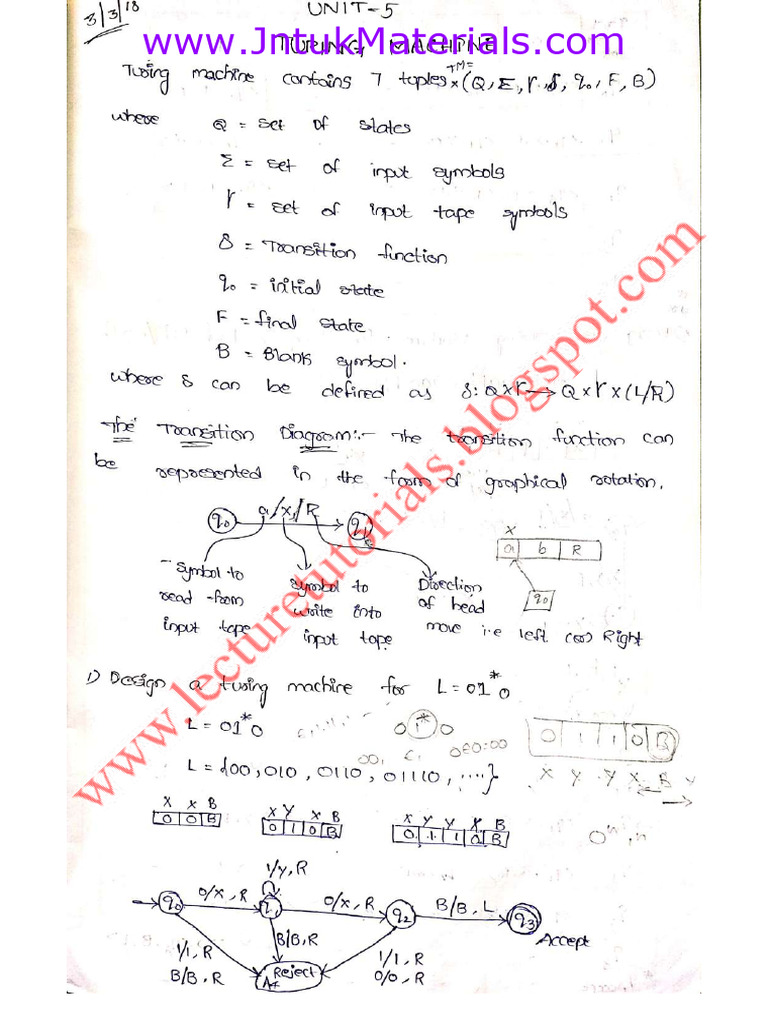 3/3/18
UNIT-5
www.JntukMaterials.com
TURING MACHINE
Turing machine contains 7 tuples TM = (Q, Σ, Γ, δ, q0, F, B)
where Q = set of states
Σ = set of input symbols
Γ = set of input tape symbols
δ = Transition function
q0 = initial state
F = final state
B = Blank symbol.
where δ can be defined as δ: Q×Γ → Q×Γ×(L/R)
The Transition Diagram:- The transition function can
be represented in the form of graphical rotation.
q0 a/x/R q1
X
a b R
q0
Symbol to read from input tape
Symbol to write into input tape
Direction of head move i.e left (or) Right
www.lecturetutorials.blogspot.com
1) Design a turing machine for L = 01*0
L = 01*0
0 1* 0
0 1 1 0 B
X Y Y X B
L = {00, 010, 0110, 01110, ....}
X X B
0 0 B
X Y X B
0 1 0 B
X Y Y X B
0 1 1 0 B
1/Y, R
q0 0/X, R q1 0/X, R q2 B/B, L q3
Accept
B/B, R
1/1, R
B/B, R
Reject
1/1, R
0/0, R